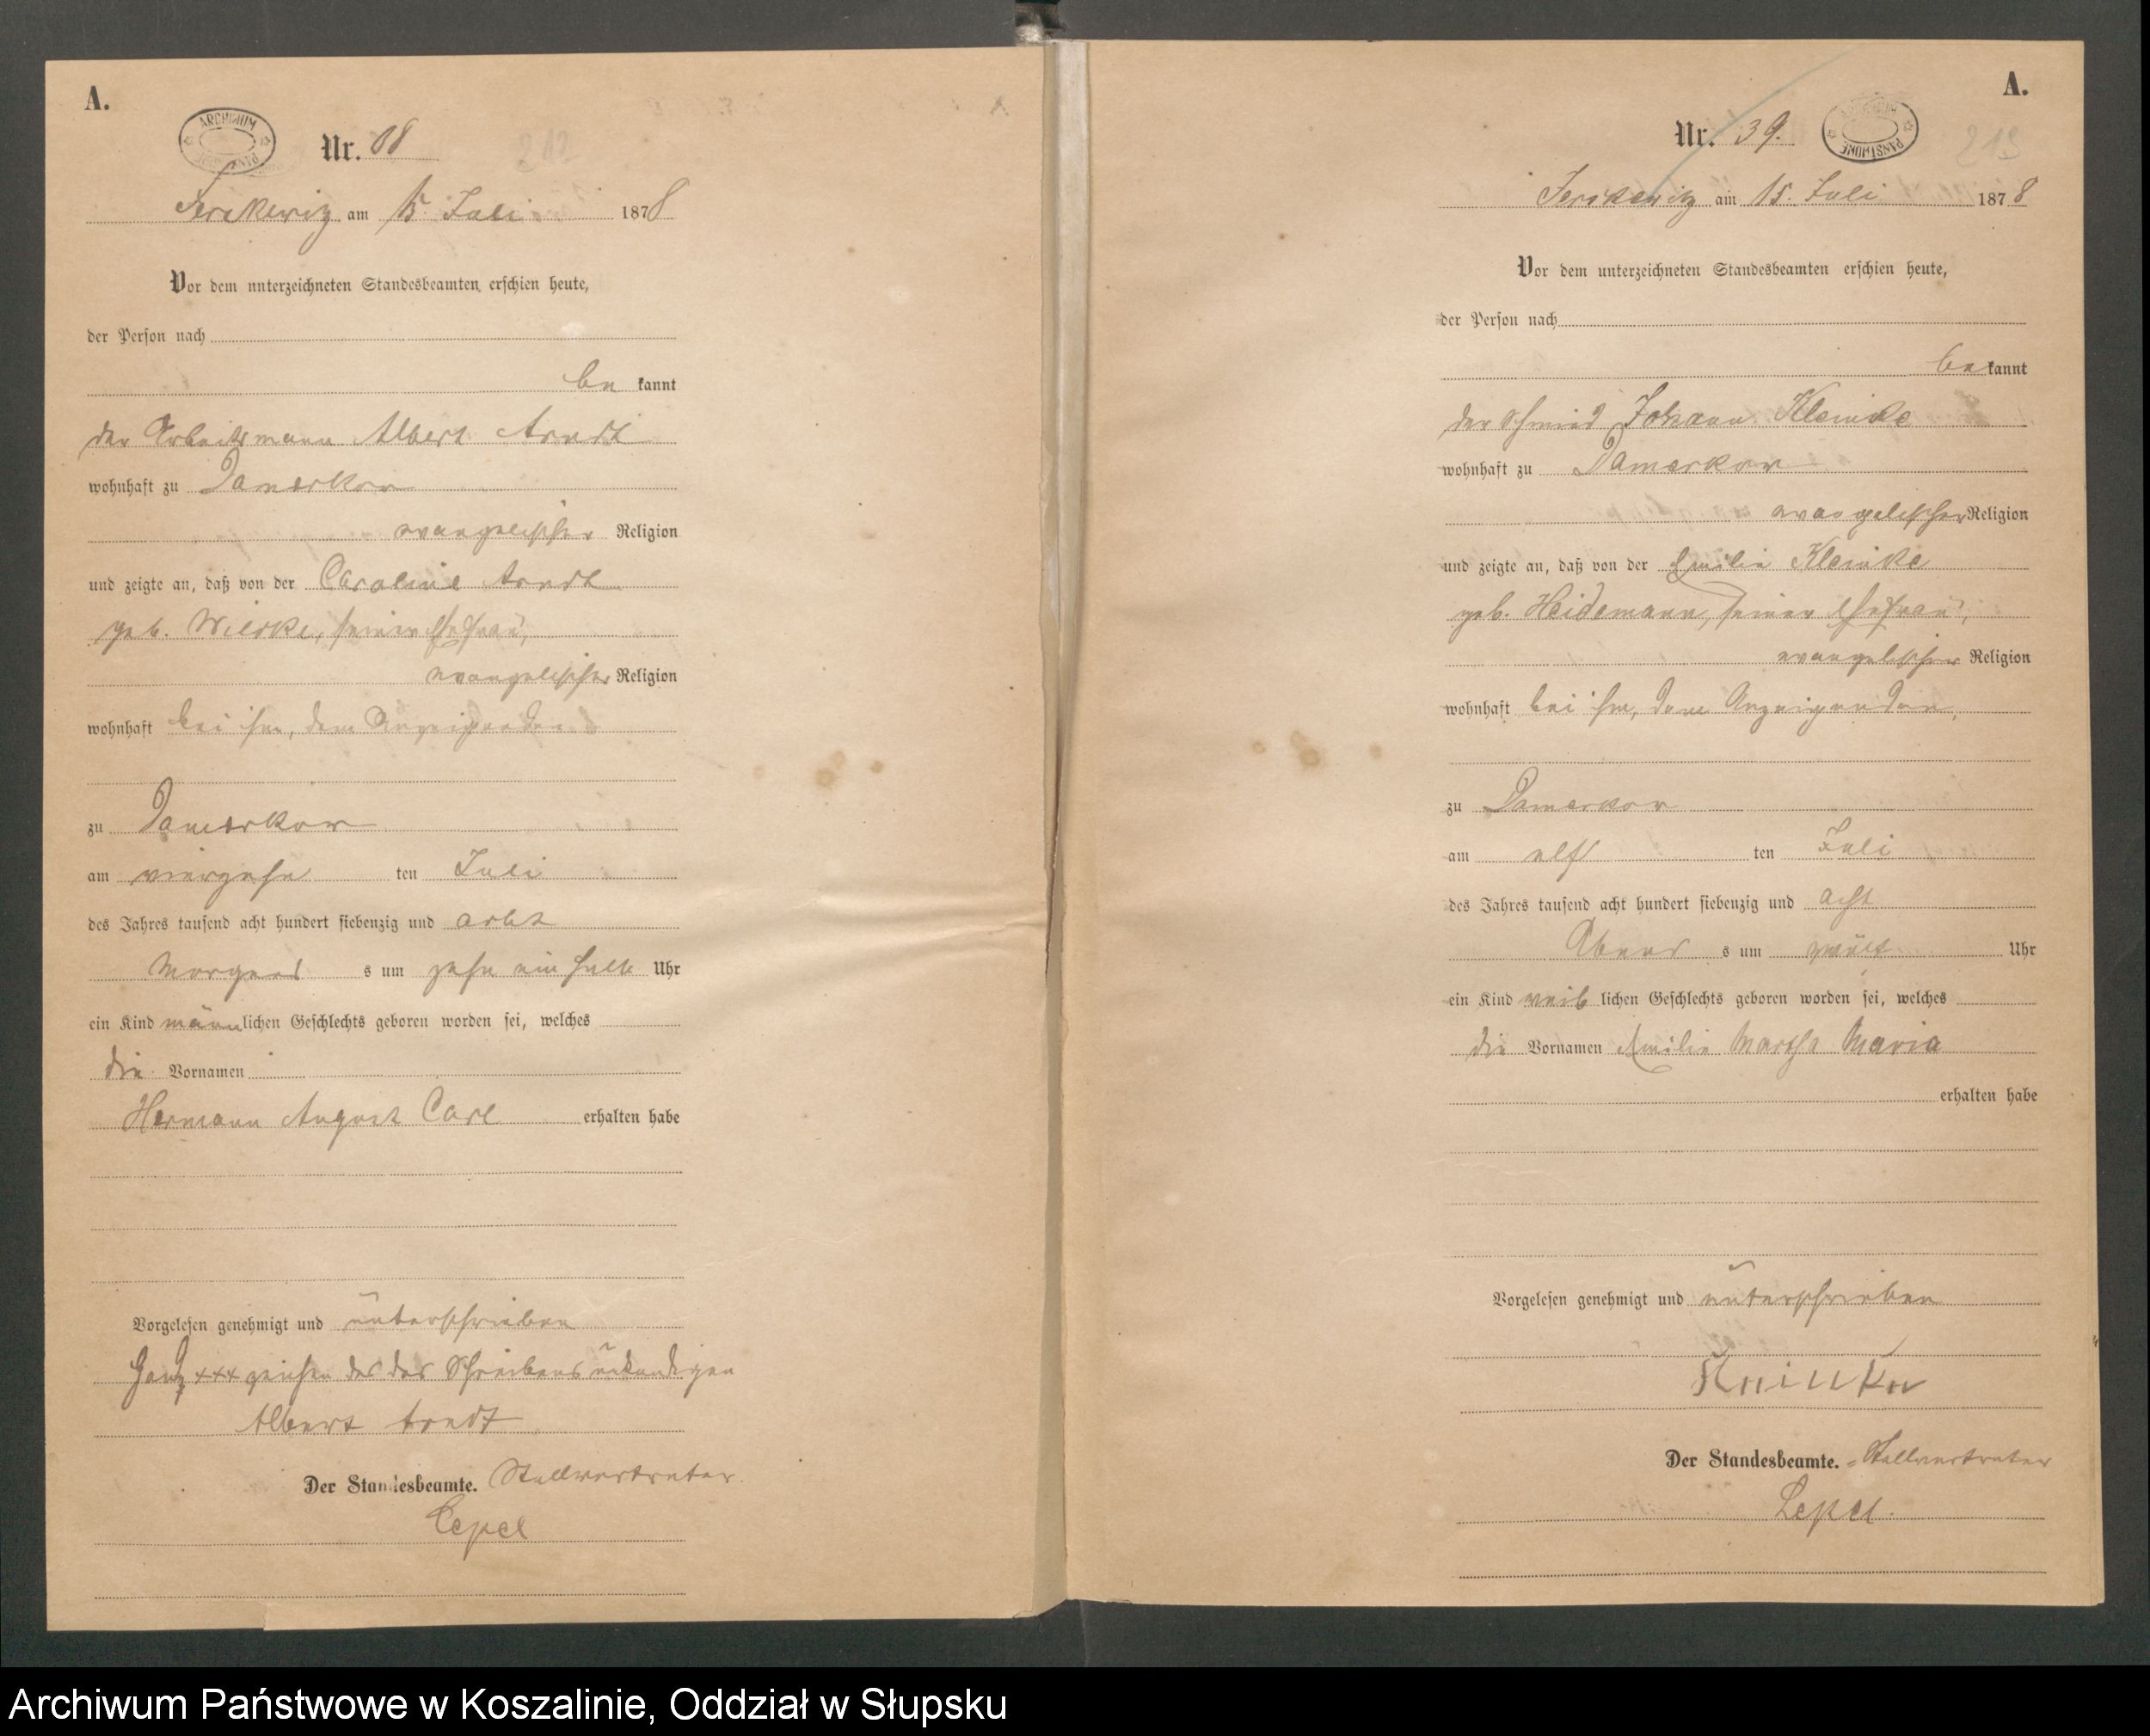 A.
ARCHIWUM PAŃSTWOWE
Nr. 212
Jerskewitz am 15. Juli 1878
Vor dem unterzeichneten Standesbeamten erschien heute,
der Person nach
be kannt
der Arbeitsmann Albert Arndt
wohnhaft zu Damerkow
evangelischer Religion
und zeigte an, daß von der Caroline Arndt
geb. Wilske, seiner Ehefrau,
evangelischer Religion
wohnhaft bei ihm, dem Anzeigenden
zu Damerkow
am vierzehn ten Juli
des Jahres tausend acht hundert siebenzig und acht
Morgens s um zehn ein halb Uhr
ein Kind männlichen Geschlechts geboren worden sei, welches
die Vornamen
Hermann August Carl erhalten habe
Vorgelesen genehmigt und unterschrieben
Handzeichen +++ des des Schreibens unkundigen
Albert Arndt
Der Standesbeamte. Stellvertreter.
Lepel
A.
Nr. 39.
ARCHIWUM PAŃSTWOWE
213
Jerskewitz am 15. Juli 1878
Vor dem unterzeichneten Standesbeamten erschien heute,
der Person nach
be kannt
der Schmied Johann Kleinke
wohnhaft zu Damerkow
evangelischer Religion
und zeigte an, daß von der Emilie Kleinke
geb. Heidemann, seiner Ehefrau,
evangelischer Religion
wohnhaft bei ihm, dem Anzeigenden,
zu Damerkow
am elf ten Juli
des Jahres tausend acht hundert siebenzig und acht
Abend s um zwölf Uhr
ein Kind weib lichen Geschlechts geboren worden sei, welches
die Vornamen Emilie Martha Maria
erhalten habe
Vorgelesen genehmigt und unterschrieben
Der Standesbeamte. Stellvertreter
Lepel.
Archiwum Państwowe w Koszalinie, Oddział w Słupsku